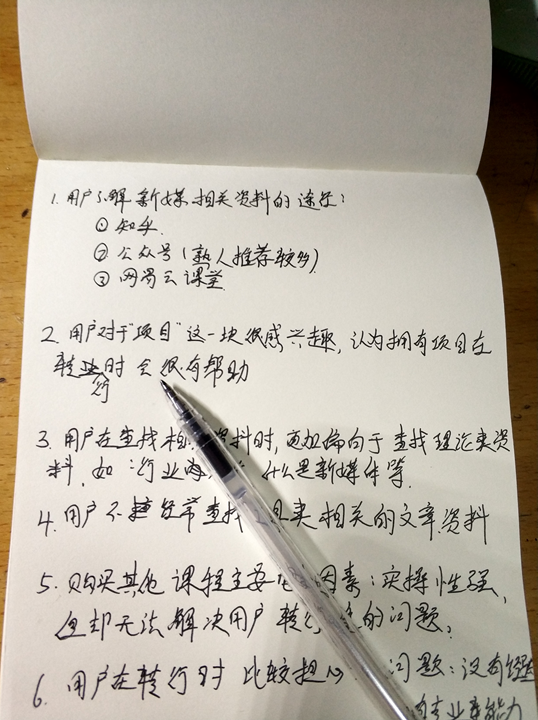 1. 用户了解新媒相关资料的途径:
① 知乎.
② 公众号(熟人推荐较多)
③ 网易云课堂
2. 用户对于"项目"这一块很感兴趣, 认为拥有项目在
转业时会很有帮助
行
3. 用户在查找相 资料时, 更加偏向于查找理论类资
料, 如: 行业 什么是新媒体等.
4. 用户不经常查找 具类相关的文章资料
5. 购买其他课程主要 因素: 实操性强,
但却无法解决用户转 的问题.
6. 用户在转行时比较担心 问题: 没有经
业 能力